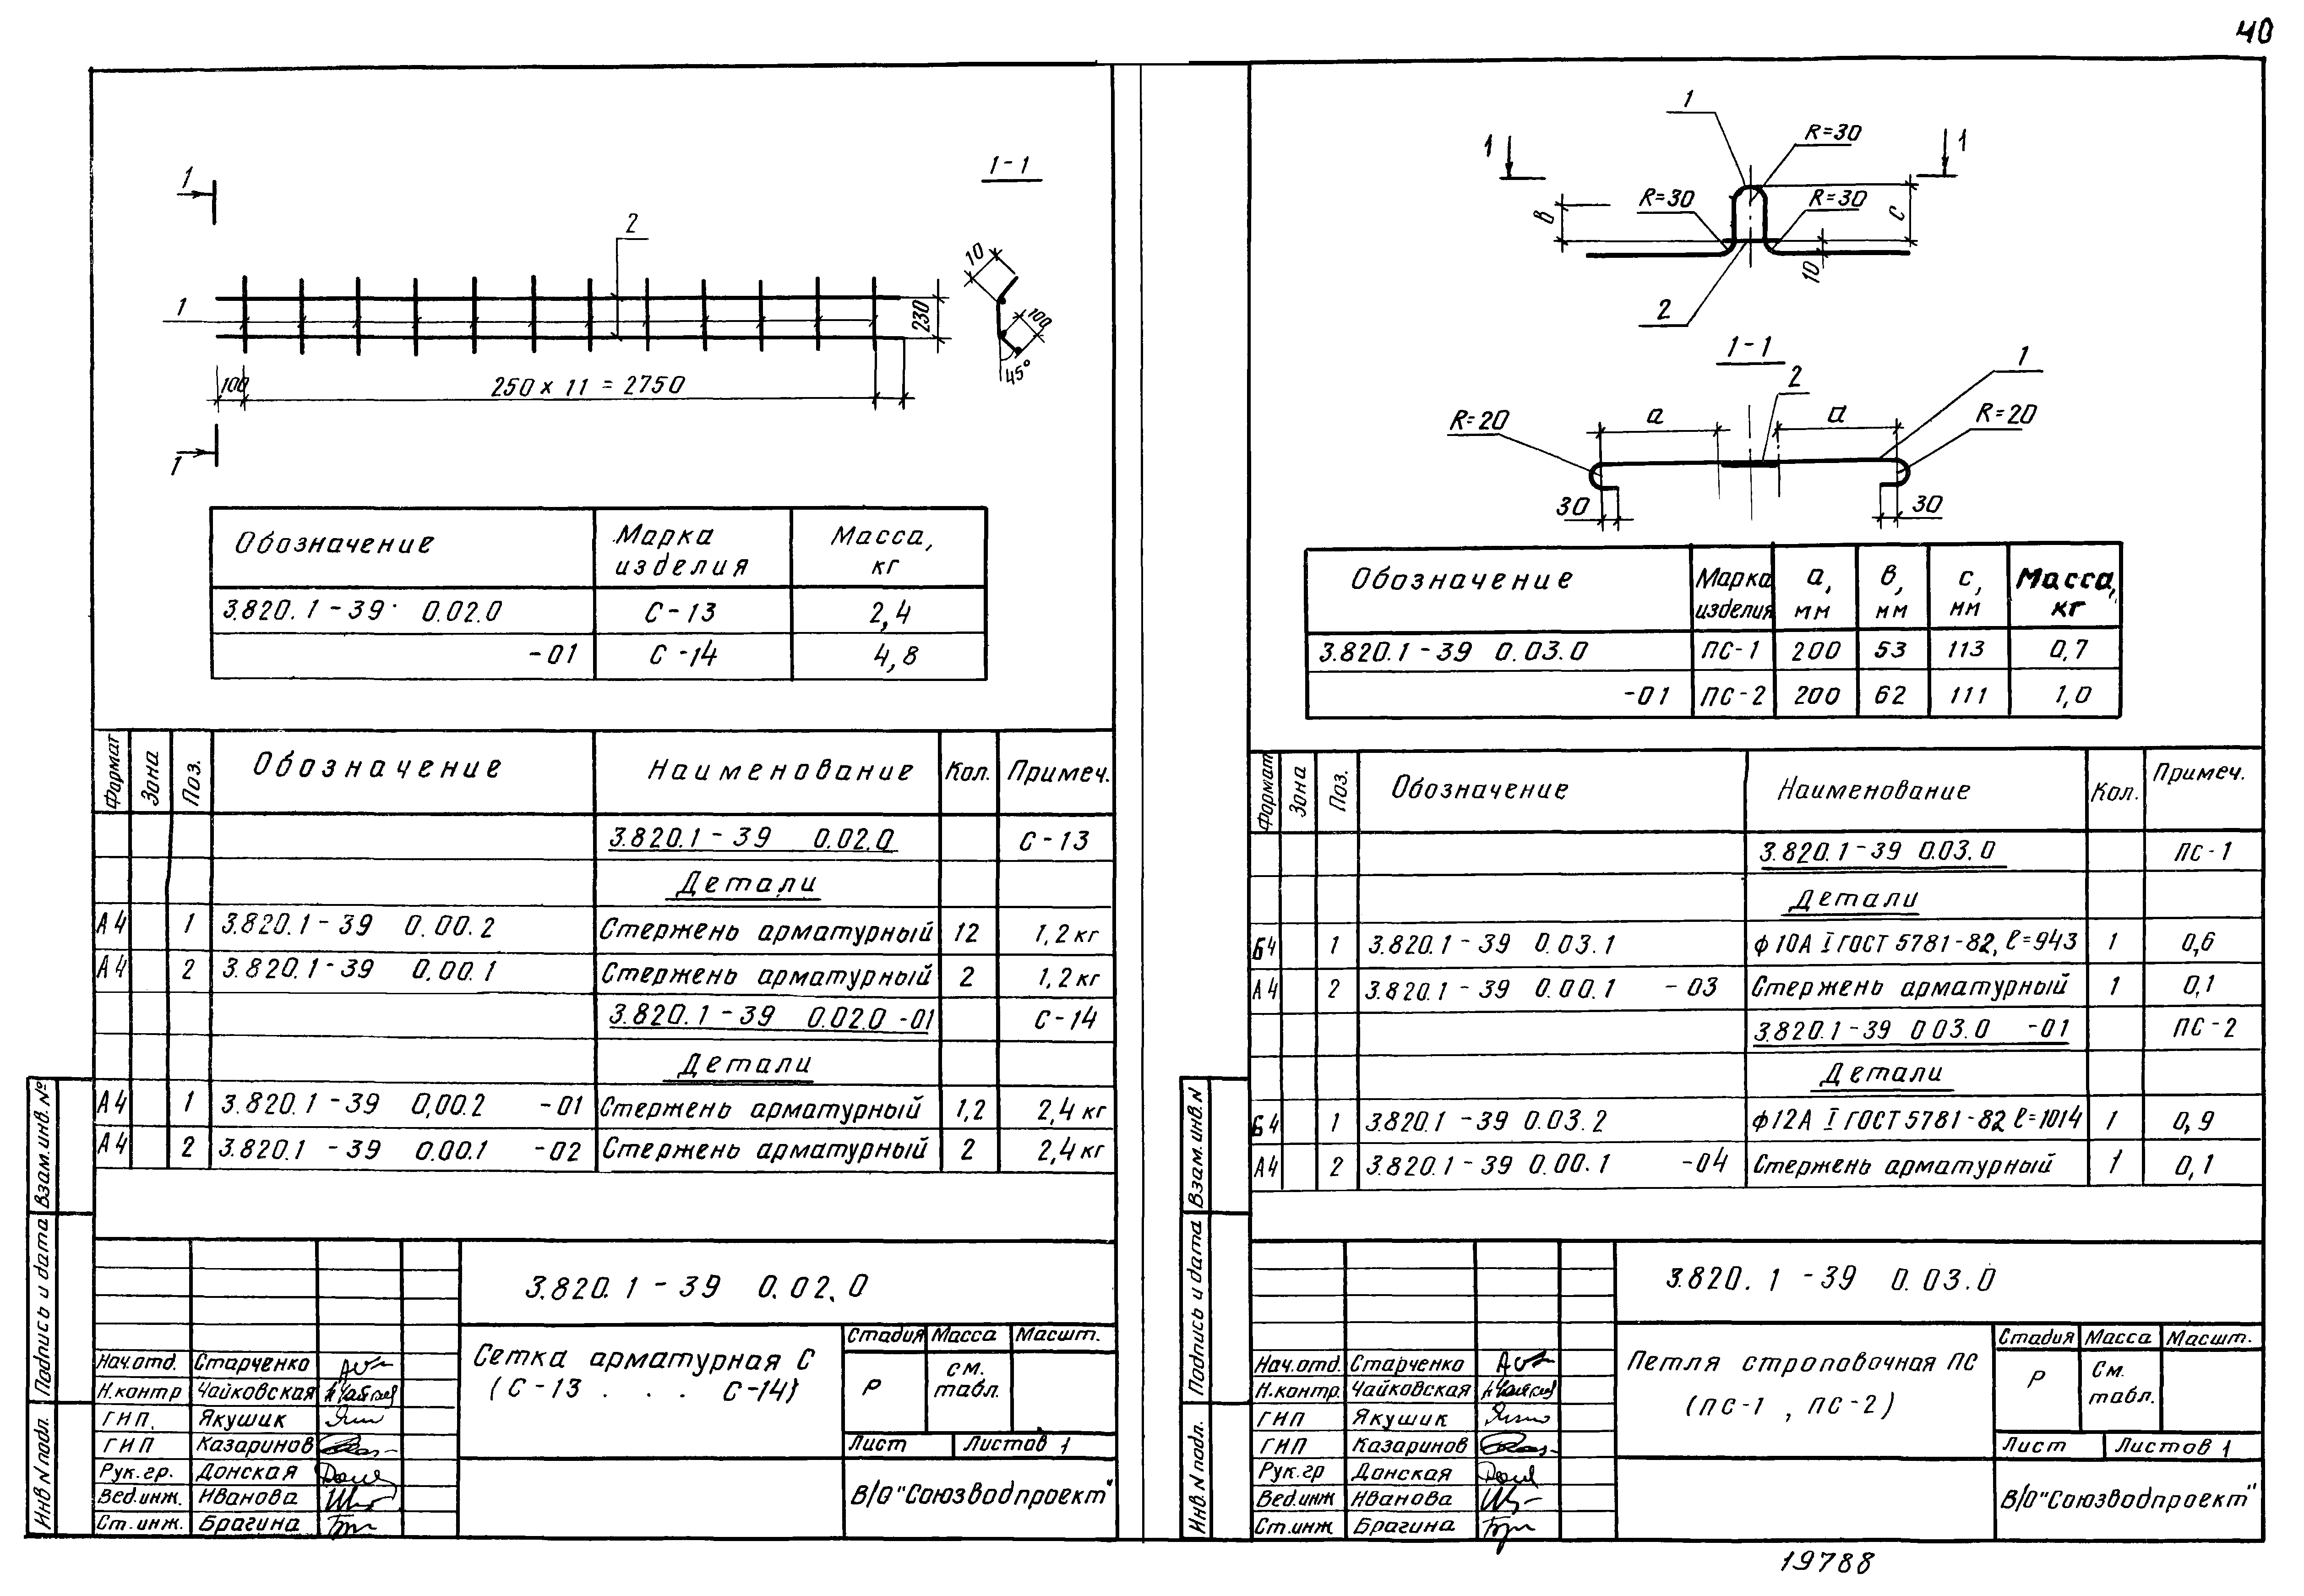 40
1
1-1
2
10
1
230
100
45°
100
250 х 11 = 2750
1
Обозначение
Марка изделия
Масса, кг
3.820.1-39 0.02.0
С-13
2,4
-01
С-14
4,8
Формат
Зона
Поз.
Обозначение
Наименование
Кол.
Примеч.
3.820.1-39 0.02.0
С-13
Детали
А4 1 3.820.1-39 0.00.2 Стержень арматурный 12 1,2 кг
А4 2 3.820.1-39 0.00.1 Стержень арматурный 2 1,2 кг
3.820.1-39 0.02.0 -01
С-14
Детали
А4 1 3.820.1-39 0,00.2 -01 Стержень арматурный 1,2 2,4 кг
А4 2 3.820.1-39 0.00.1 -02 Стержень арматурный 2 2,4 кг
Взам.инв.№
Подпись и дата
Инв.N подл.
3.820.1-39 0.02.0
Сетка арматурная С
(С-13 . . . С-14)
Стадия Масса Масшт.
Р
см. табл.
Лист
Листов 1
В/О "Союзводпроект"
Нач.отд. Старченко
Н.контр Чайковская
ГИП. Якушик
ГИП Казаринов
Рук.гр. Донская
Вед.инж. Иванова
Ст.инж. Брагина
1
R=30
1
1
R=30
R=30
в
с
10
2
1-1
1
2
R=20
а
а
R=20
30
30
Обозначение
Марка изделия
а, мм
в, мм
с, мм
Масса, кг
3.820.1-39 0.03.0 ПС-1 200 53 113 0,7
-01 ПС-2 200 62 111 1,0
Формат
Зона
Поз.
Обозначение
Наименование
Кол.
Примеч.
3.820.1-39 0.03.0
ПС-1
Детали
Б4 1 3.820.1-39 0.03.1 ф10А I ГОСТ 5781-82, ℓ=943 1 0,6
А4 2 3.820.1-39 0.00.1 -03 Стержень арматурный 1 0,1
3.820.1-39 0 03.0 -01
ПС-2
Детали
Б4 1 3.820.1-39 0.03.2 ф12А I ГОСТ 5781-82 ℓ=1014 1 0,9
А4 2 3.820.1-39 0.00.1 -04 Стержень арматурный 1 0,1
Взам.инв.N
Подпись и дата
Инв.N подл.
3.820.1-39 0.03.0
Петля строповочная ПС
(ПС-1, ПС-2)
Стадия Масса Масшт.
Р
См. табл.
Лист
Листов 1
В/О "Союзводпроект"
Нач.отд. Старченко
Н.контр. Чайковская
ГИП Якушик
ГИП Казаринов
Рук.гр Донская
Вед.инж Иванова
Ст.инж Брагина
19788